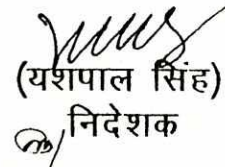 (यशपाल सिंह)
निदेशक